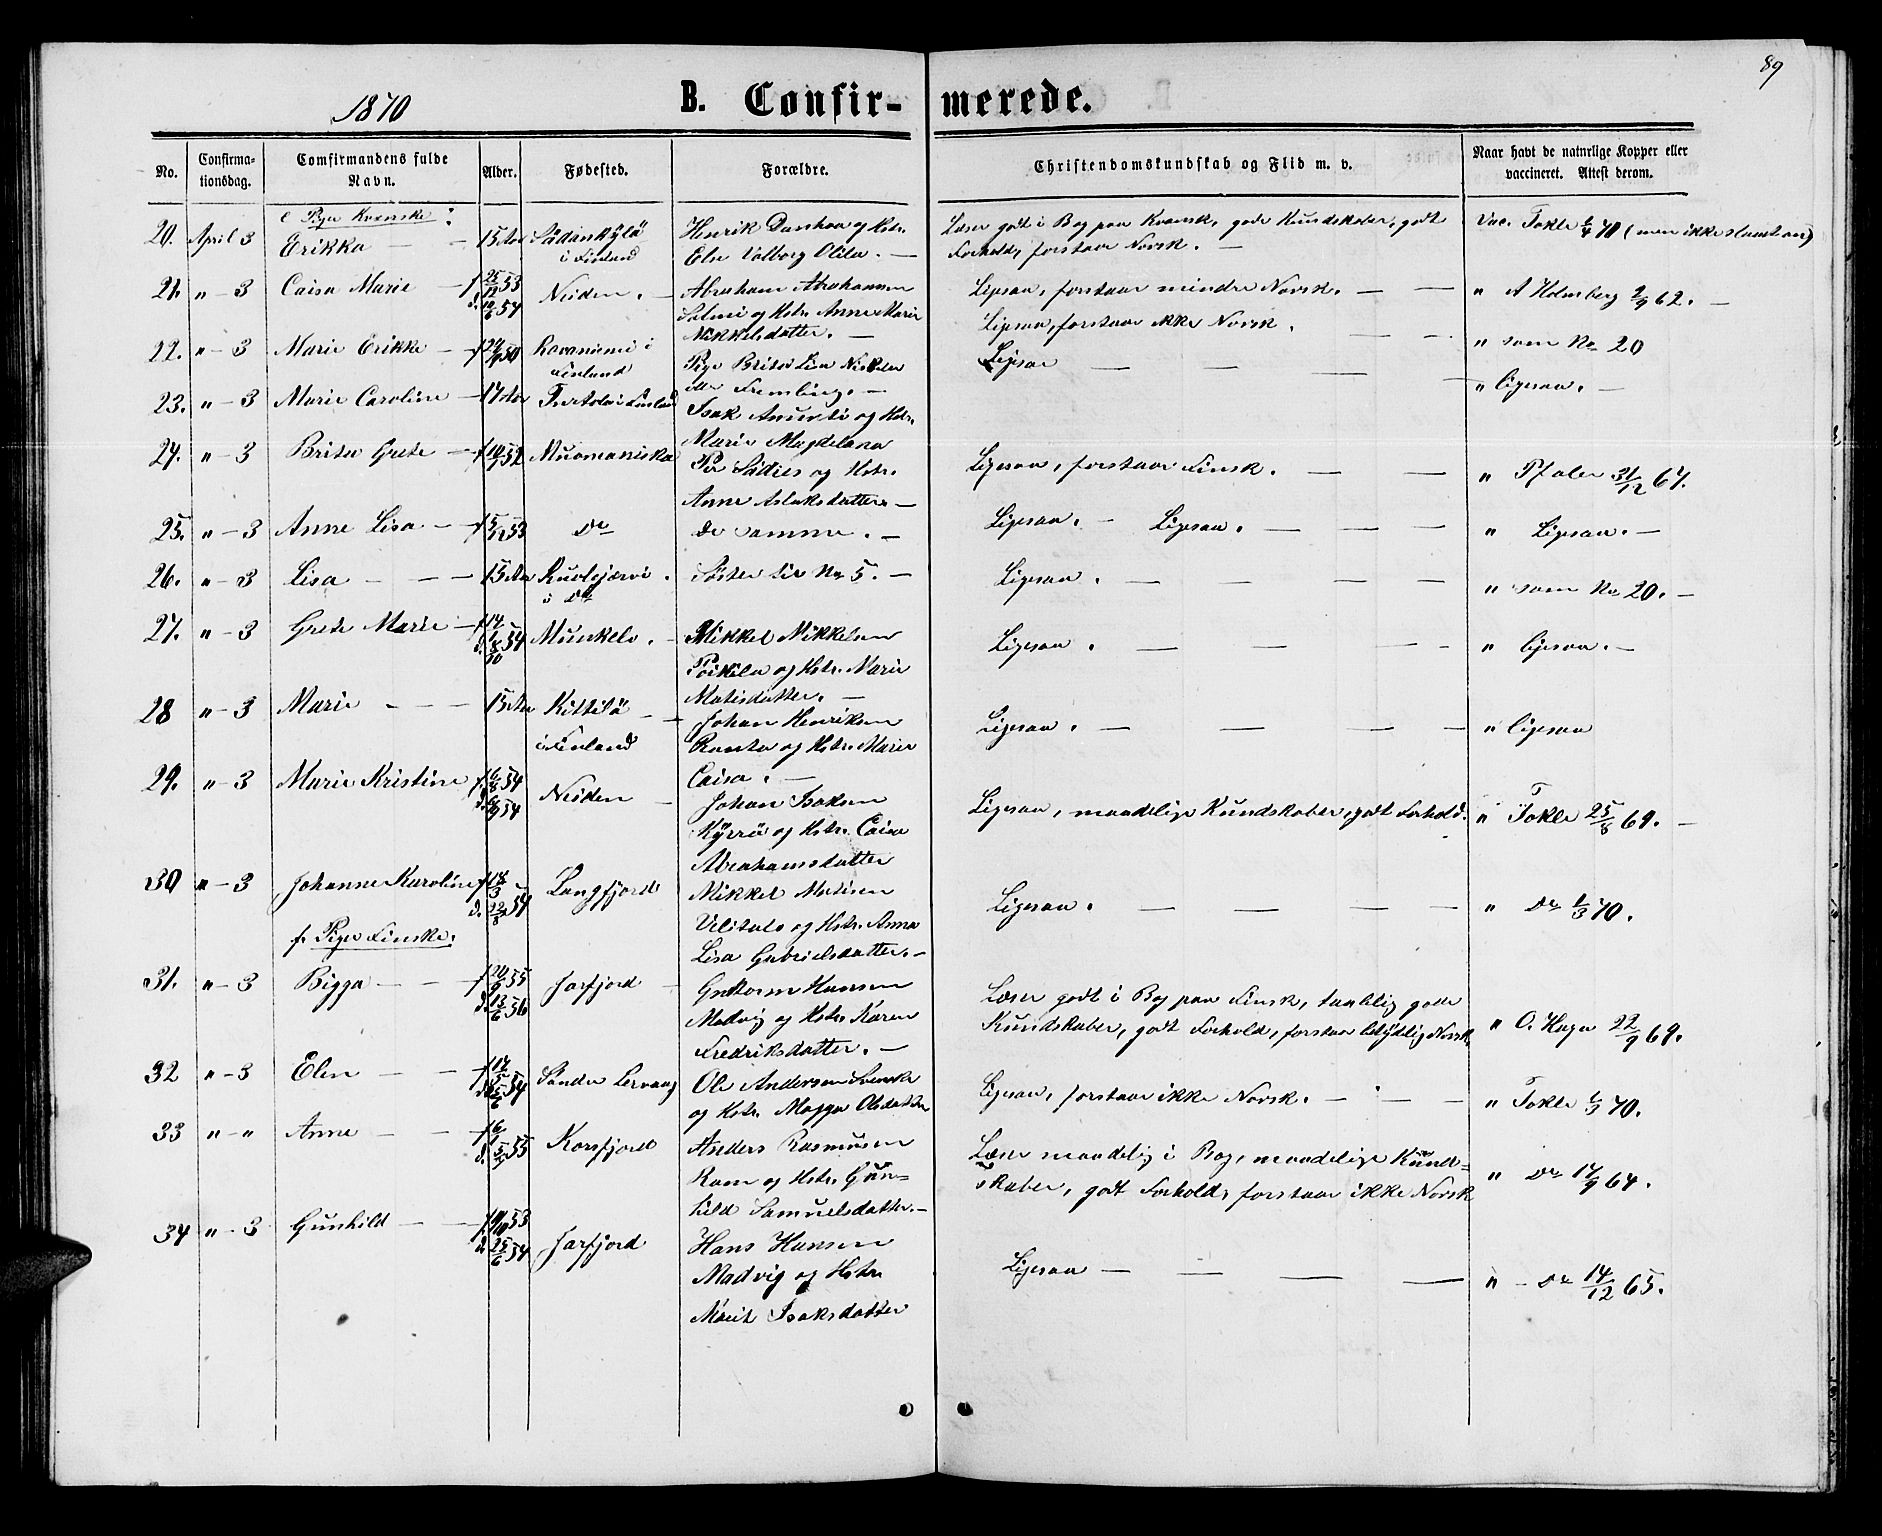 89
1870 B. Confir- merede.
No. Confirma-tionsdag. Comfirmandens fulde Navn. Alder. Fødested. Forældre. Christendomskundskab og Flid m. v. Naar havt de natnrlige Kopper eller vaccineret. Attest derom.
e Piger Kvænske:
20. April 3 Erikka — — 15 Aar Sådänkylä i Finland Henrik Danhoa og Hstr. Else Valborg Olila. — Læser godt i Bog paa Kvænsk, gode Kundskaber, godt Forhold, forstaar Norsk. — Vac. Tokle 6/4 70 (men ikke slaaet an)
21. " — 3 Caisa Marie — f 25/12 53 d. 18/6 54 Neiden. — Abraham Abrahamsen Salmi og Hstr. Anne Marie Mikkelsdatter. — Ligesaa, forstaar mindre Norsk. — — " A Holmberg 2/9 62. —
22. " — 3 Marie Erikke — f 24/9 50 Rovaniemi i Finland Pige Brita Lisa Niskala Ligesaa, forstaar ikke Norsk. — — " som No 20
23. " — 3 Marie Caroline — 17 Aar Turtola i Finland Isak og Hstr. Marie Magdelena Ligesaa — — — — " ligesaa. —
24. " — 3 Brita Grete — f 10/7 52 Muomaniska Per Sådies og Hstr. Anne Aslaksdatter. — Ligesaa, forstaar Finsk. — — — " Pfaler 31/12 67.
25. " — 3 Anne Lisa — — f 5/12 53 Do de samme. — Ligesaa. — Ligesaa. — — — " Ligesaa. —
26. " — 3 Lisa — — — 15 Aar Kuolajærvi i Do Søster til No 5. — Ligesaa. — — — — " som No 20. —
27. " — 3 Grete Marie — f 14/7 d. 8/10 54 Munkelv. — Mikkel Mikkelsen Poikela og Hstr. Marie Matisdatter. — Ligesaa. — — — — " ligesaa. —
28 " — 3 Marie — — — 15 Aar Kittilä — i Finland Johan Henriksen Ranta og Hstr. Marie Caisa. — Ligesaa. — — — — " ligesaa
29. " — 3 Marie Kristine f. 6/8 54 d. 9/9 54 Neiden — Johan Isaksen Kyrrö og Hstr. Caisa Abrahamsdatter Ligesaa, maadelige Kundskaber, godt Forhold. " Tokle 25/8 69. —
30 " — 3 Johanne Karoline f 18/3 d. 22/8 54 Langfjord Mikkel Matisen Ulitalo og Hstr. Anna Lisa Gabrielsdatter. — Ligesaa. — — — — " Do 1/3 70.
f. Piger Finske.
31. " — 3 Bigga — — f 20/9 55 d. 13/6 56 Jarfjord — Guttorm Hansen Madvig og Hstr. Karen Fredriksdatter. — Læser godt i Bog paa Finsk, taalelig gode Kundskaber, godt Forhold, forstaar Norsk " O. Haga 22/9 69.
32 " — 3 Elen — — f 17/5 54 Søndre Lervaag Ole Andersen Svenske og Hstr. Magga Olsdatter Ligesaa, forstaar ikke Norsk. — — — " Tokle 1/3 70.
33 " — " Anne — — f 6/1 d. 55 Korsfjord Anders Rasmusen Ram og Hstr. Gun-hild Samuelsdatter. — Læser maadelig i Bog, maadelige Kund=skaber, godt Forhold, forstaar ikke Norsk " Do 17/9 64.
34 " — 3 Gunhild — — f 53 d. 25/6 54 Jarfjord Hans Hansen Madvig og Hstr. Marit Isaksdatter Ligesaa — — — — " — Do 14/12 65.